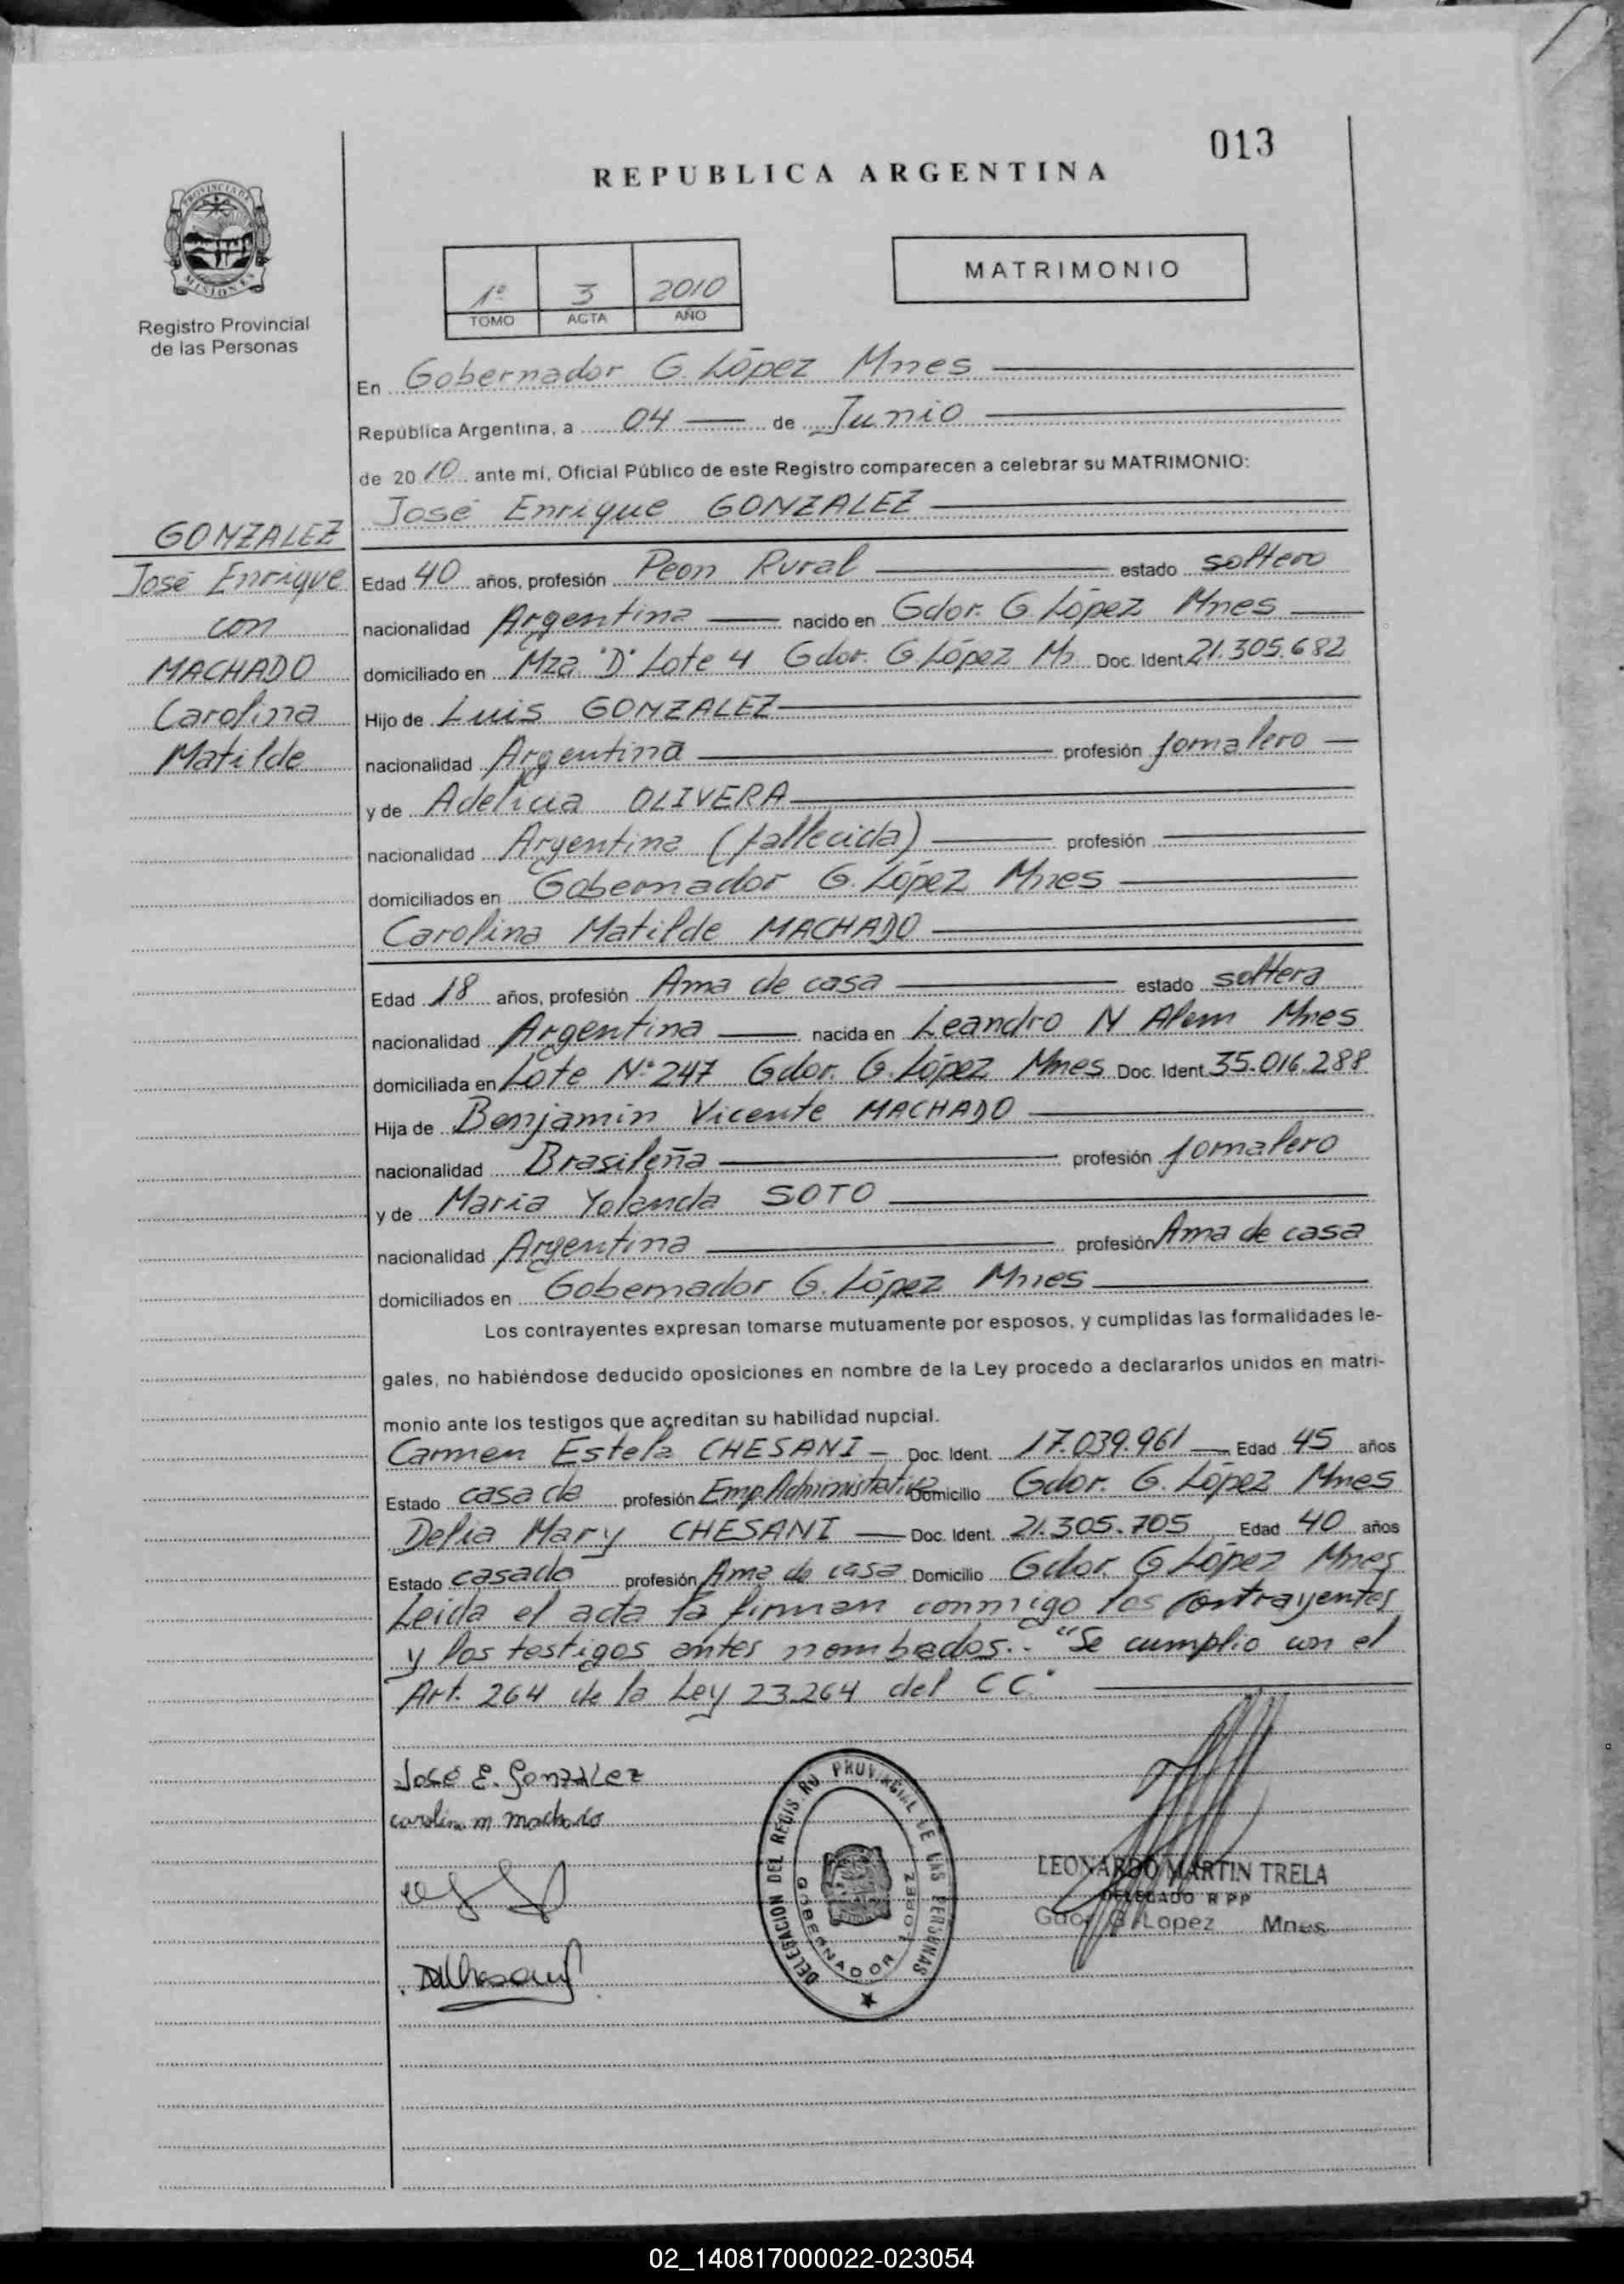 013
REPUBLICA ARGENTINA
PROVINCIA DE
MISIONES
Registro Provincial
de las Personas
1º 3 2010
TOMO ACTA AÑO
MATRIMONIO
En Gobernador G. López Mnes
República Argentina, a 04 de Junio
de 2010 ante mí, Oficial Público de este Registro comparecen a celebrar su MATRIMONIO:
José Enrique GONZALEZ
GONZALEZ
José Enrique
con
MACHADO
Carolina
Matilde
Edad 40 años, profesión Peon Rural estado soltero
nacionalidad Argentina nacido en Gdor. G. López Mnes
domiciliado en Mza "D" Lote 4 Gdor. G. López Ms Doc. Ident 21.305.682
Hijo de Luis GONZALEZ
nacionalidad Argentina profesión Jornalero
y de Adelicia OLIVERA
nacionalidad Argentina (fallecida) profesión
domiciliados en Gobernador G. López Mnes
Carolina Matilde MACHADO
Edad 18 años, profesión Ama de casa estado soltera
nacionalidad Argentina nacida en Leandro N Alem Mnes
domiciliada en Lote Nº 247 Gdor. G. López Mnes Doc. Ident 35.016.288
Hija de Benjamin Vicente MACHADO
nacionalidad Brasileña profesión Jornalero
y de Maria Yolanda SOTO
nacionalidad Argentina profesión Ama de casa
domiciliados en Gobernador G. López Mnes
Los contrayentes expresan tomarse mutuamente por esposos, y cumplidas las formalidades le-
gales, no habiéndose deducido oposiciones en nombre de la Ley procedo a declararlos unidos en matri-
monio ante los testigos que acreditan su habilidad nupcial.
Carmen Estela CHESANI Doc. Ident. 17.039.961 Edad 45 años
Estado casada profesión Emp. Administrativa Domicilio Gdor. G. López Mnes
Delia Mary CHESANI Doc. Ident. 21.305.705 Edad 40 años
Estado casada profesión Ama de casa Domicilio Gdor. G López Mnes
Leida el acta la firman conmigo los contrayentes
y los testigos antes nombrados.- "Se cumplio con el
Art. 264 de la Ley 23.264 del CC"
José E. Gonzalez
carolina m machado
DELEGACION DEL REGISTRO PROVINCIAL DE LAS PERSONAS
GOBERNADOR LOPEZ
LEONARDO MARTIN TRELA
DELEGADO R P P
Gdor G. Lopez Mnes
02_140817000022-023054